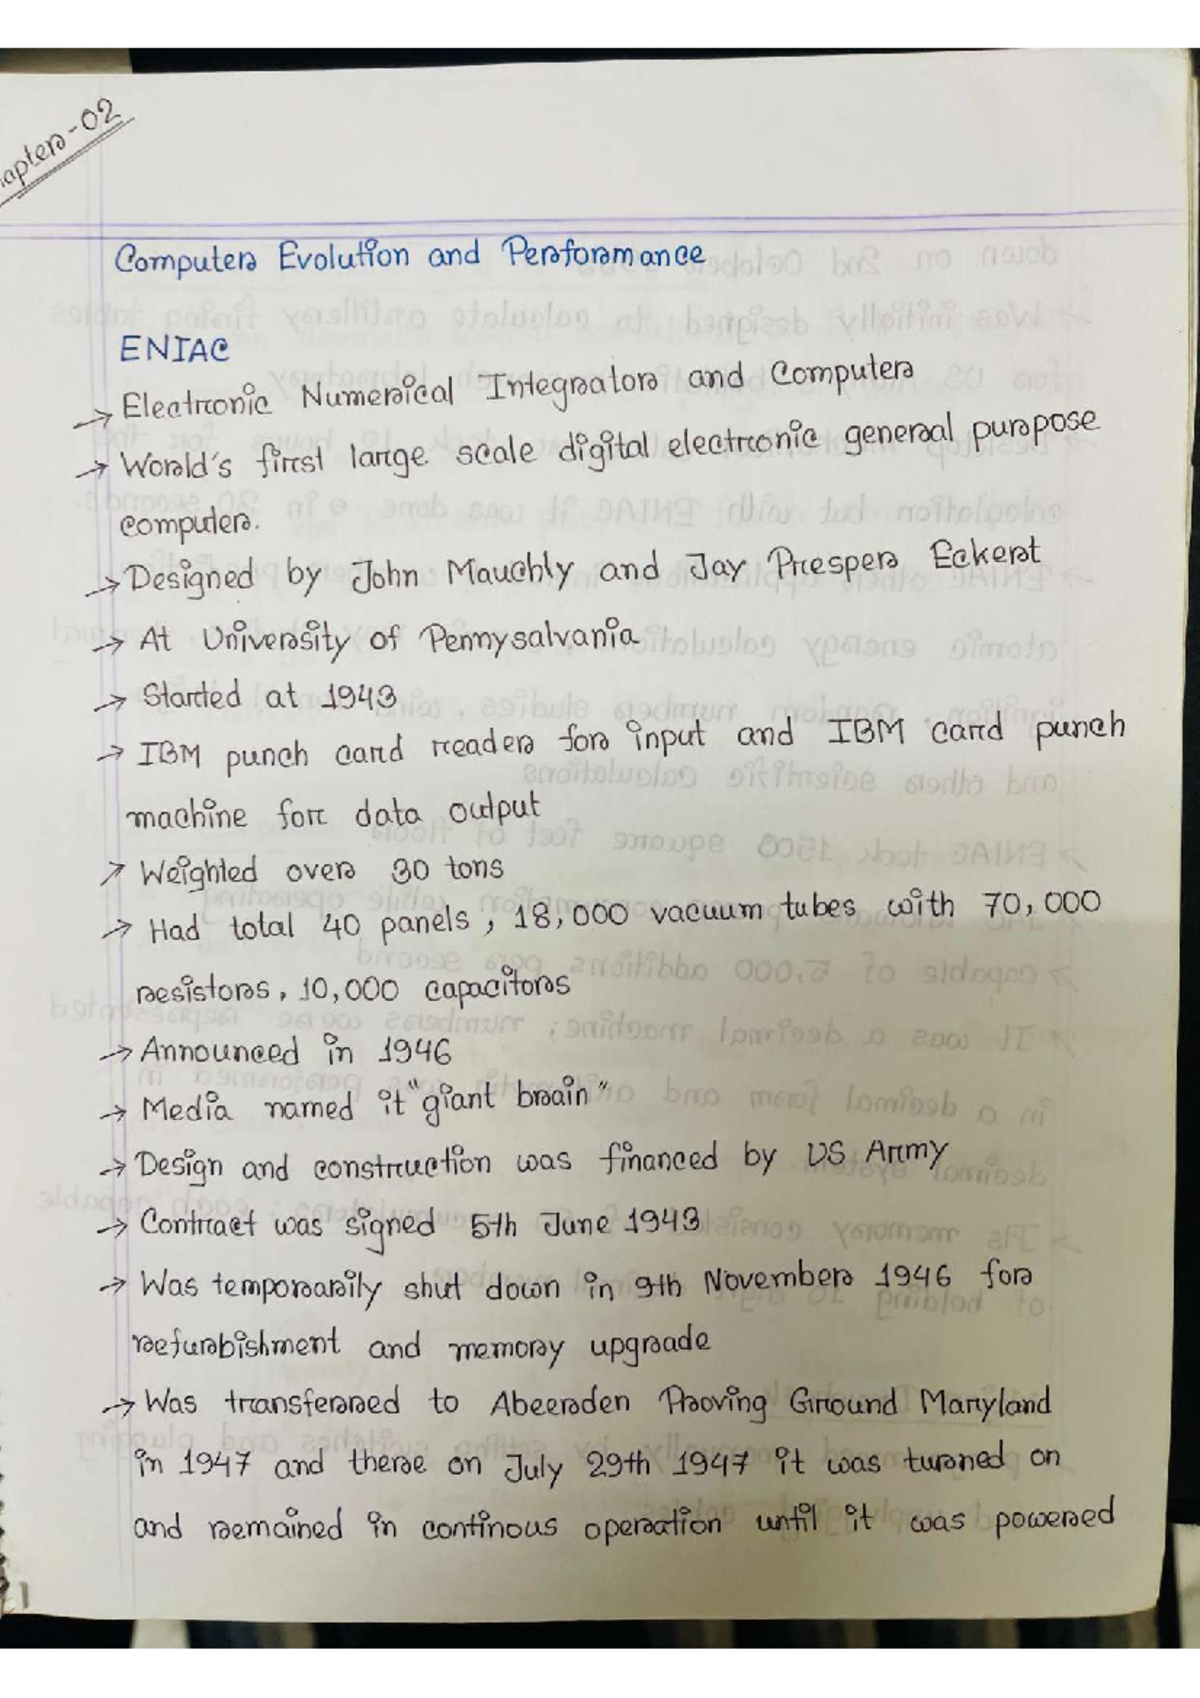 Chapter-02
Computer Evolution and Performance
ENIAC
→ Electronic Numerical Integrator and Computer
→ World's first large scale digital electronic general purpose
computer.
→ Designed by John Mauchly and Jay Presper Eckert
→ At University of Pennysalvania
→ Started at 1943
→ IBM punch card reader for input and IBM card punch
machine for data output
→ Weighted over 30 tons
→ Had total 40 panels, 18,000 vacuum tubes with 70,000
resistors, 10,000 capacitors
→ Announced in 1946
→ Media named it "giant brain"
→ Design and construction was financed by US Army
→ Contract was signed 5th June 1943
→ Was temporarily shut down in 9th November 1946 for
refurbishment and memory upgrade
→ Was transferred to Abeerden Proving Ground Maryland
in 1947 and there on July 29th 1947 it was turned on
and remained in continous operation until it was powered